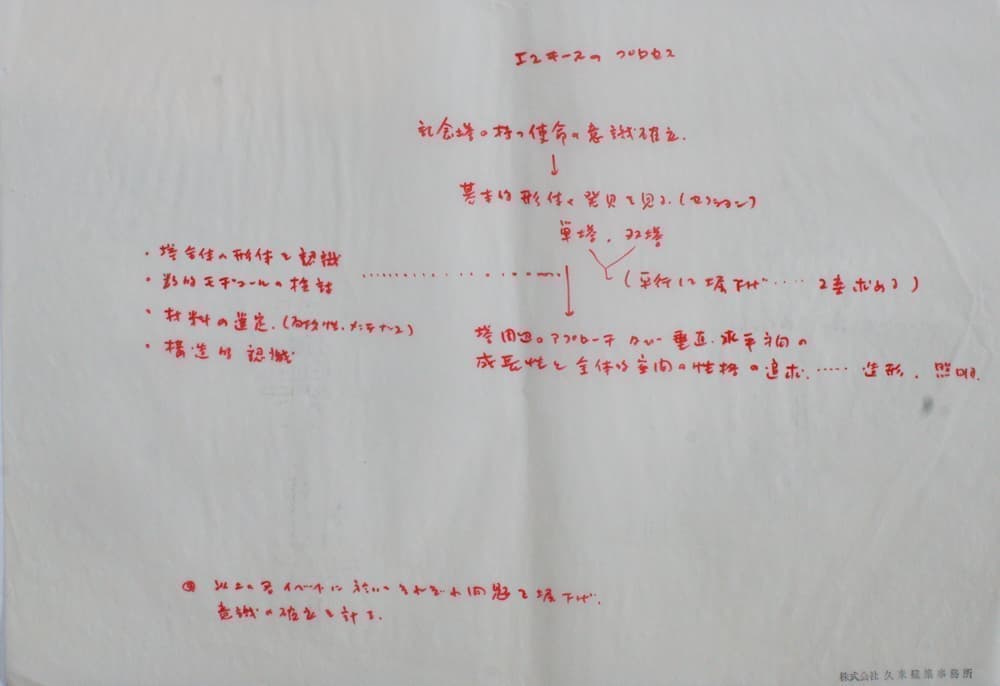 エスキースのプロセス
記念塔の持つ使命の意識確立.
↓
基本的形体の発見を見る.(セクション)
単塔、双塔
(平行に堀下げ‥‥ 2案求める)
・塔全体の形体を認識
・数的モデュールの検討
・材料の選定.(耐久性.メンテナンス)
・構造的認識
塔周辺のアプローチ 垂直.水平方向の
成長性と全体的空間の性格の追求.‥‥ 造形.照明.
以上の各イベントに於いてそれぞれ問題を堀下げ.
意識の確立を計る.
株式会社 久米建築事務所